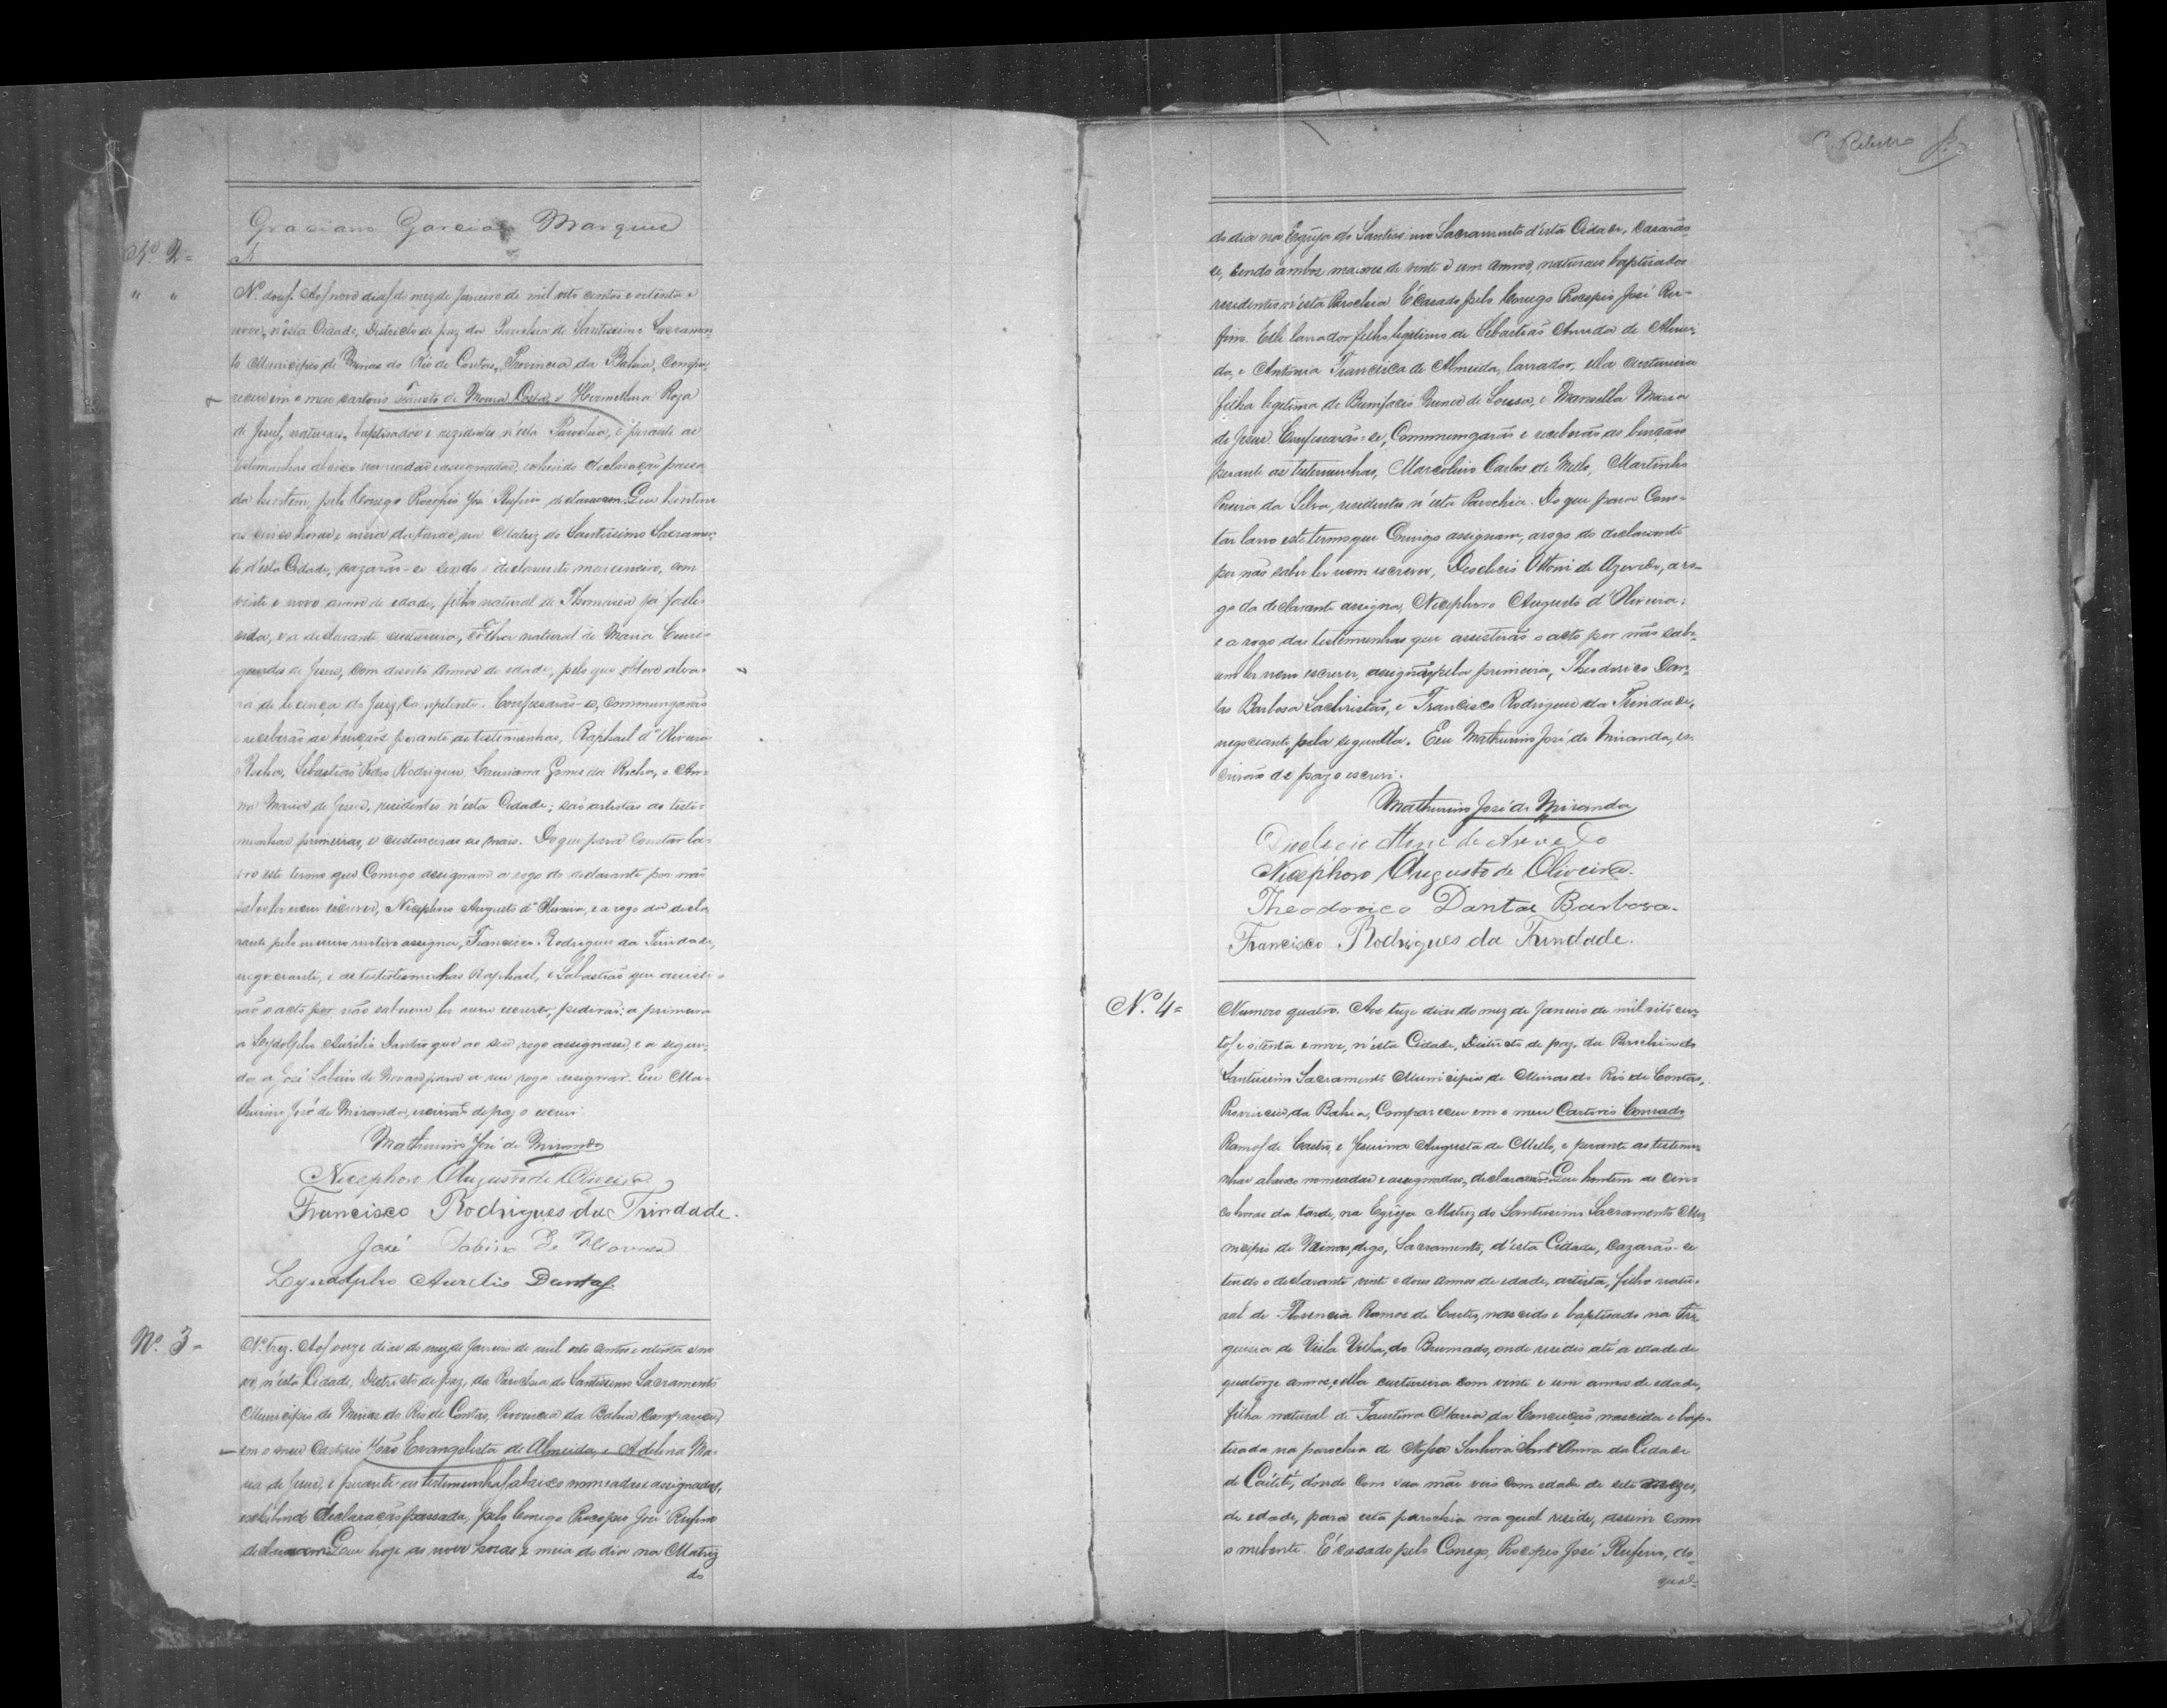 Graciano Garcia Marques
Nº 2=
" "
Nº dous. Aos nove dias do mez de Janeiro de mil oito centos e oitenta e
nove, n'esta Cidade, Districto de paz da Parochia do Santissimo Sacramen-
to Municipio de Minas do Rio de Contas, Provincia da Bahia, Compa-
receu em o meu cartorio de Moura Costa, e Hermellina Roza
de Jesus, naturaes, baptisados e rezidentes n'esta Parochia, e perante as
testemunhas abaixo nomeadas e assignadas, exhibindo declaração passa-
da hontem, pelo Conego Procopio José Rufino declararam: Que hontem
as cinco horas e meia da tarde, na Matriz do Santissimo Sacramen-
to d'esta Cidade, cazarão-se sendo o declarante marceneiro, com
vinte e nove annos de edade, filho natural de Thomazia ja fale-
cida, e a declarante custureira, filha natural de Maria
de Jesus, com annos de edade, pelo que obteve alva-
rá de licença do Juiz Competente. Confessarão-se, commungarão
e receberão as bençãos perante as testemunhas, Raphael d'Oliveira
Rocha, Sebastião Pedro Rodrigues, Gomes da Rocha, e An-
na Maria de Jesus, residentes n'esta Cidade; são artistas as teste-
munhas primeiras, e custureiras as mais. Do que para constar la-
vro este termo que Comigo assignam a rogo do declarante por não
saber ler nem escrever, Nicephoro Augusto d'Oliveira, e a rogo da decla-
rante pelo mesmo motivo assigna, Francisco Rodrigues da Trindade,
negociante, e as testemunhas Raphael, e Sebastião que assisti-
rão o acto por não saberem ler nem escrever, pedirão: a primeira
a Lyndolpho Aurelio Dantas que ao seu rogo assignasse, e a segun-
da a José Sabino de Novaes para a seu rogo assignar. Eu Ma-
thurino José de Miranda, escrivão de paz o escrevi.
Mathurino José de Miranda
Nicephoro Augusto de Oliveira
Francisco Rodrigues da Trindade.
José Sabino de Novaes
Lyndolpho Aurelio Dantas.
Nº 3-
Nº trez. Aos onze dias do mez de Janeiro de mil oito centos e oitenta e no-
ve, n'esta Cidade, Districto de paz, da Parochia do Santissimo Sacramento
Municipio de Minas do Rio de Contas, Provincia da Bahia Compareceu,
em o meu Cartorio João Evangelista de Almeida, e Adelina Ma-
ria de Jesus, e perante as testemunhas abaixo nomeadas e assignadas,
exhibindo declaração passada, pelo Conego Procopio José Rufino
declararam: Que hoje as nove horas e meia do dia na Matriz
do
C. Ribeiro
do dia na Egreja do Santissimo Sacramento d'esta Cidade, casarão-
se, sendo ambos maiores de vinte e um annos, naturaes baptisados
residentes n'esta Parochia. É casado pelo Conego Procopio José Ru-
fino. Elle lavrador filho legitimo de Sebastião de Almei-
da, e Antonia Francisca de Almeida, lavrador, ella custureira
filha legitima de Bonifacio Nunes de Sousa, e Manoella Maria
de Jesus. Confessarão-se, Commungarão e receberão as bençãos
perante as testemunhas, Marcolino Carlos de Mello, Martinho
Pereira da Silva, residentes n'esta Parochia. Do que para Cons-
tar lavro este termo que Comigo assignam, a rogo do declarante
por não saber ler nem escrever, Dioclecio Ottoni de Azevedo, a ro-
go da declarante assigna, Nicephoro Augusto d'Oliveira;
e a rogo das testemunhas que assistirão o acto por não sabe-
rem ler nem escrever, assignão pela primeira, Theodorico Dan-
tas Barbosa Sachristão, e Francisco Rodrigues da Trindade,
negociante, pela segunda. Eu Mathurino José de Miranda, es-
crivão de paz o escrevi.
Mathurino José de Miranda
Dioclecio de Azevedo
Nicephoro Augusto de Oliveira.
Theodorico Dantas Barbosa.
Francisco Rodrigues da Trindade.
Nº 4=
Numero quatro. Aos treze dias do mez de Janeiro de mil oito cen-
tos e oitenta e nove, n'esta Cidade, Districto de paz, da Parochia do
Santissimo Sacramento Municipio de Minas do Rio de Contas,
Provincia da Bahia, Compareceu em o meu Cartorio Conrado
Ramos de Castro, e Jesuina Augusta de Mello, e perante as testemu-
nhas abaixo nomeadas e assignadas, declararão: Que hontem as cin-
co horas da tarde, na Egreja Matriz do Santissimo Sacramento Mu-
nicipio de Minas, digo, Sacramento, d'esta Cidade, cazarão-se
tendo o declarante vinte e dous annos de edade, artista, filho natu-
ral de Florencia Ramos de Castro, nascido e baptisado na Fre-
guesia de Villa Velha, do Brumado, onde residio até a edade de
quatorze annos, e ella custureira com vinte e um annos de edade,
filha natural de Faustina Maria da Conceição nascida e bap-
tisada na parochia de Nossa Senhora Sant'Anna da Cidade
de Caiteté, donde com sua mãe veio com edade de sete mezes,
de edade, para esta parochia na qual reside, assim como
o nubente. É casado pelo Conego, Procopio José Rufino, do
qual-